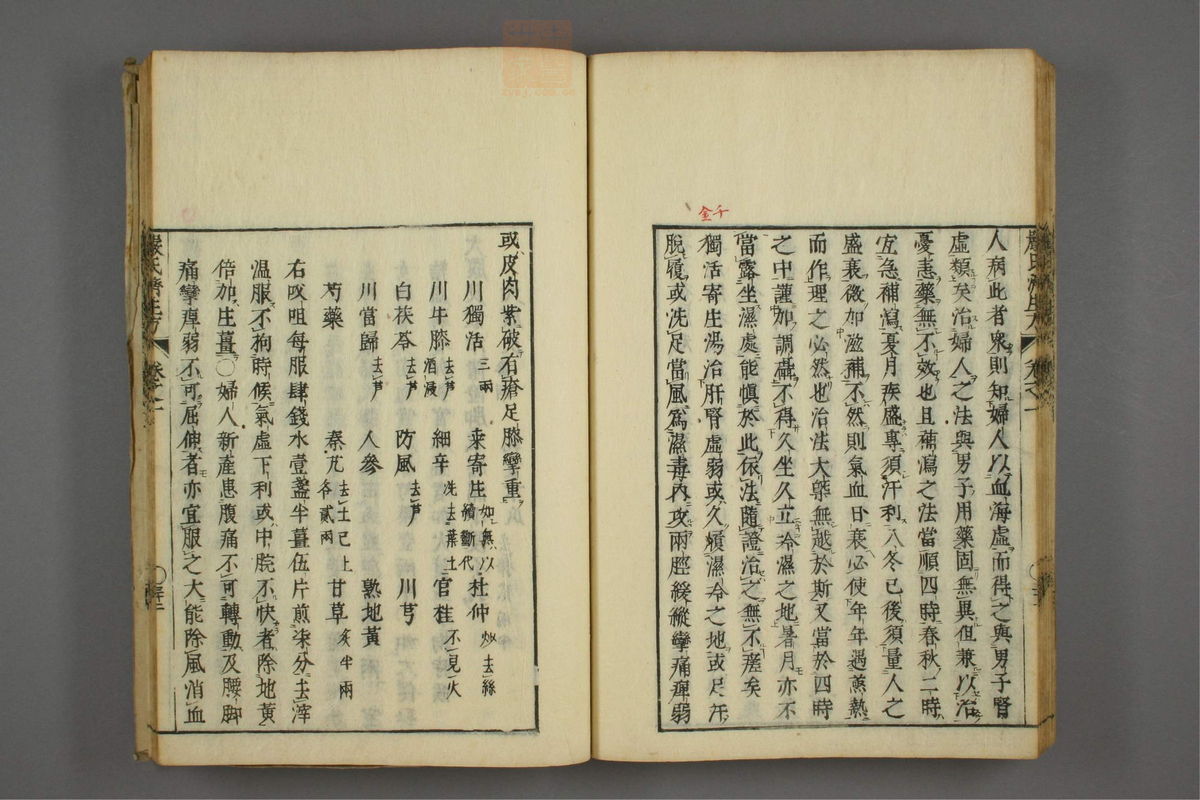 千金
人病此者衆則知婦人以血海虛而得之與男子腎
虛類矣治婦人之法與男子用藥固無異但兼以治
憂恚藥無不效也且補瀉之法當順四時春秋二時
宜急補瀉夏月疾盛專須汗利入冬已後須量人之
盛衰微加滋補不然則氣血日衰必使年年遇蒸熱
而作理之必然也治法大槩無越於斯又當於四時
之中謹加調攝不得久坐久立冷濕之地暑月亦不
當露坐濕處能愼於此依法隨證治之無不瘥矣
獨活寄生湯治肝腎虛弱或久履濕冷之地或足汗
脫履或洗足當風爲濕毒內攻兩脛緩縱攣痛痺弱
嚴氏濟生方 卷之一
或皮肉紫破有瘡足膝攣重
川獨活三兩 桒寄生如無以續斷代 杜仲炒去絲
川牛膝去芦酒浸 細辛洗去葉土 官桂不見火
白茯苓去芦 防風去芦 川芎
川當歸去芦 人參 熟地黃
芍藥 秦艽去土已上各貳兩 甘草炙半兩
右㕮咀每服肆錢水壹盞半薑伍片煎柒分去滓
温服不拘時候氣虛下利或中脘不快者除地黃
倍加生薑○婦人新產患腹痛不可轉動及腰脚
痛攣痺弱不可屈伸者亦宜服之大能除風消血
嚴氏濟生方 卷之一